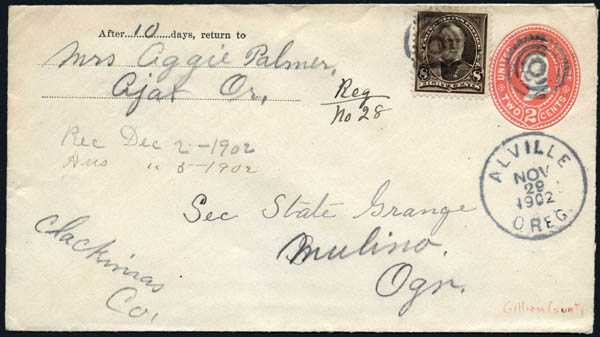 After 10 days, return to
Mrs Aggie Palmer,
Ajax Or,
Reg
No 28
8 8
EIGHT CENTS
UNITED
TWO 2 CENTS
Rec Dec 2 - 1902
Ans " 5 - 1902
ALVILLE
NOV
29
1902
OREG.
Sec State Grange
Mulino,
Ogn.
Clackimas
Co,
Gilliam County